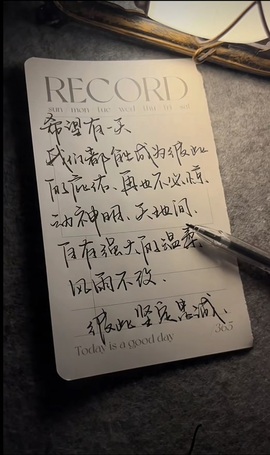 RECORD
sun mon tue wed thu fri sat
希望有一天
我们都能成为彼此
的庇佑、再也不必惊
动神明、天地间、
自有强大的温柔
风雨不改、
彼此坚定忠诚、
Today is a good day
365